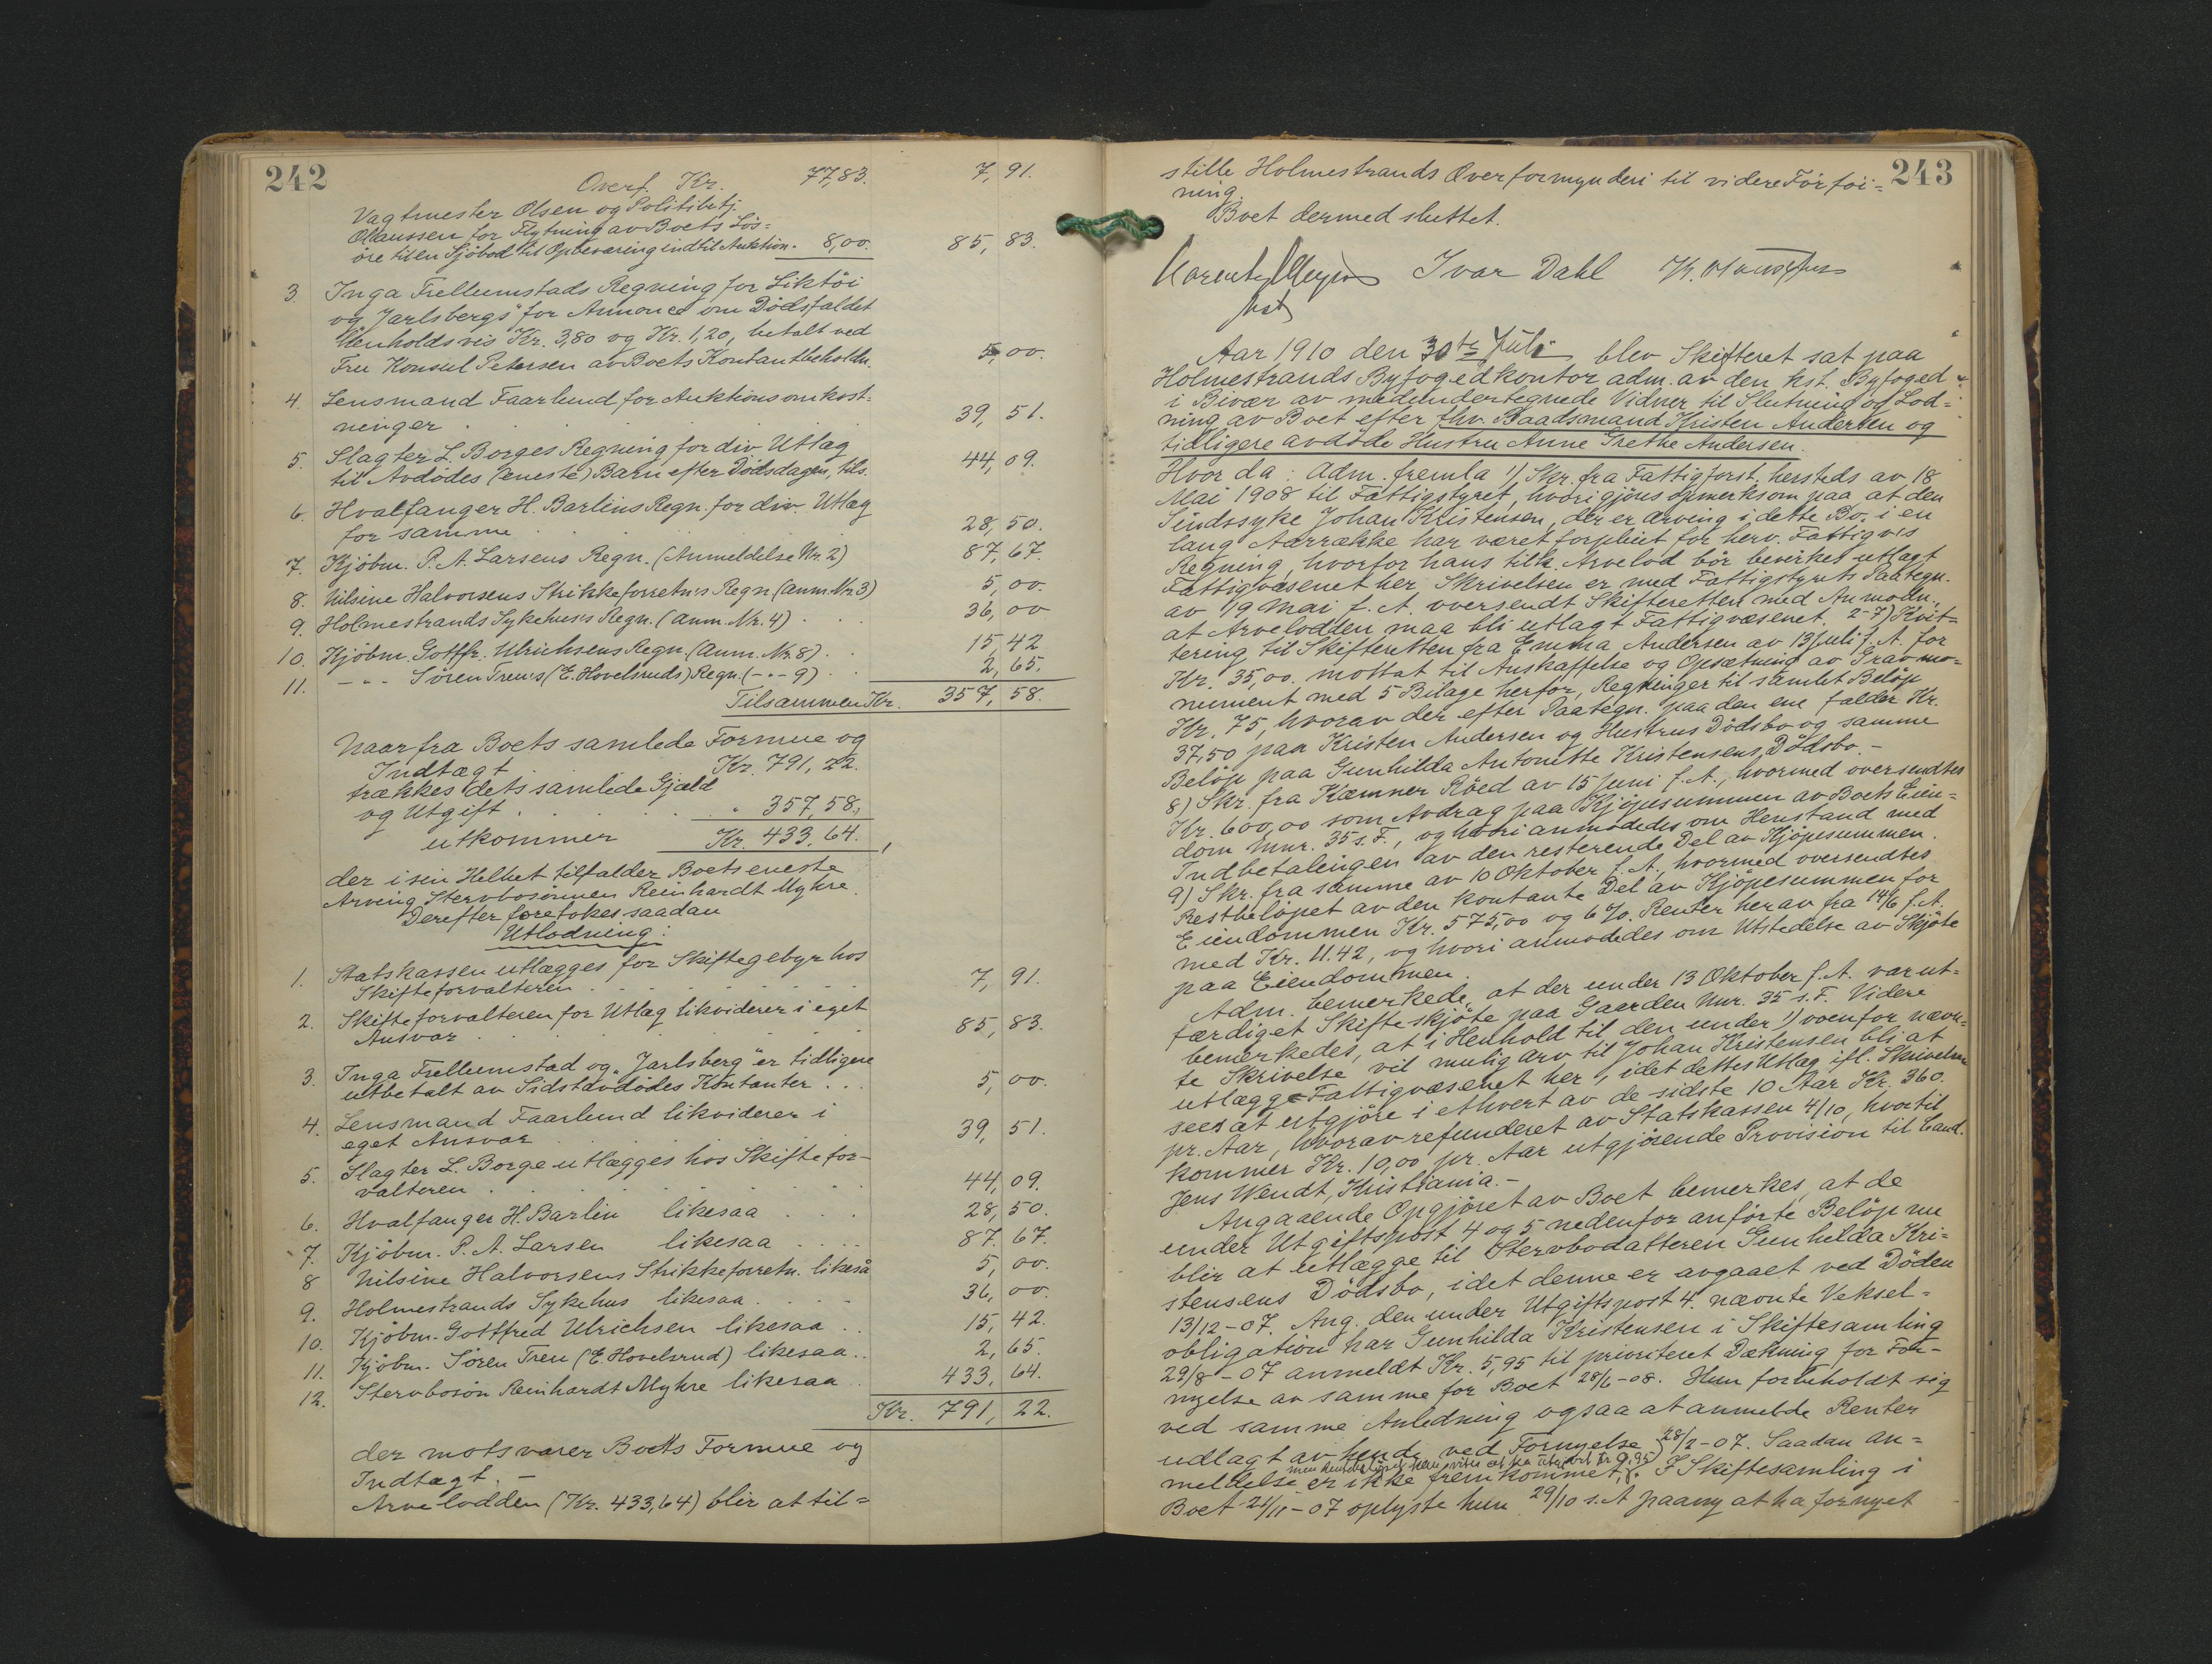 242
Overf. Kr. 77,83. 7, 91.
Vagtmester Olsen og Politibetj.
Olaussen for Flytning av Boets Løs-
øre til en Sjøbod til Opbevaring indtil Auktion. 8,00. 85, 83.
3. Inga Frellumstads Regning for Liktøi
og "Jarlsbergs" for Annonce om Dødsfaldet
henholdsvis Kr. 3,80 og Kr. 1,20, betalt ved
Fru Konsul Petersen av Boets Kontantbeholdn. 5, 00.
4. Lensmand Faarlund for Auktionsomkost-
ninger 39, 51.
5. Slagter L. Borges Regning for div. Utlæg
til Avdødes (eneste) Barn efter Dødsdagen, tils. 44, 09.
6. Hvalfanger H. Barlins Regn. for div. Utlæg
for samme 28, 50.
7. Kjøbm. P. A. Larsens Regn. (Anmeldelse Nr. 2) 87, 67.
8. Nilsine Halvorsens Strikkeforretn's Regn. (anm. Nr. 3) 5, 00.
9. Holmestrands Sykehus's Regn. (anm. Nr. 4) 36, 00
10. Kjøbm. Gottfr. Ulrichsens Regn. (anm. Nr. 8) 15, 42
11. -"- Søren Treu's (E. Hovelsruds) Regn. (-"- 9) 2, 65.
Tilsammen Kr. 357, 58.
Naar fra Boets samlede Formue og
Indtægt Kr. 791, 22.
trækkes dets samlede Gjæld
og Utgift " 357,58.
utkommer Kr. 433,64.,
der i sin Helhet tilfalder Boets eneste
Arving Stervbosønnen Reinhardt Myhre.
Derefter foretokes saadan
Utlodning:
1. Statskassen utlægges for Skiftegebyr hos
Skifteforvalteren 7, 91.
2. Skifteforvalteren for Utlæg likviderer i eget
Ansvar 85, 83.
3. Inga Frellumstad og "Jarlsberg" er tidligere
utbetalt av Sidstavdødes Kontanter 5, 00.
4. Lensmand Faarlund likviderer i
eget Ansvar 39, 51.
5. Slagter L. Borge utlægges hos Skiftefor-
valteren 44, 09.
6. Hvalfanger H. Barlin likesaa 28, 50.
7. Kjøbm. P. A. Larsen likesaa 87, 67.
8 Nilsine Halvorsens Strikkeforretn. likeså 5, 00.
9. Holmestrands Sykehus likesaa 36, 00.
10. Kjøbm. Gottfred Ulrichsen likesaa 15, 42.
11. Kjøbm. Søren Treu (E. Hovelsrud) likesaa 2, 65.
12. Stervbosøn Reinhardt Myhre likesaa 433, 64.
Kr. 791, 22.
der motsvarer Boets Formue og
Indtægt. -
Arvelodden (Kr. 433,64) blir at til=
243
stille Holmestrands Overformynderi til videre Forføi=
ning.
Boet dermed sluttet.
Ivar Dahl
kst
Aar 1910 den 30te Juli blev Skifteret sat paa
Holmestrands Byfogedkontor adm. av den kst. Byfoged
i Bivær av medundertegnede Vidner til Slutning og Lod=
ning av Boet efter fhv. Baadsmand Kristen Andersen og
tidligere avdøde Hustru Anne Grethe Andersen.
Hvor da: Adm. fremla 1) Skr. fra Fattigforst. hersteds av 18
Mai 1908 til Fattigstyret, hvori gjøres opmerksom paa at den
Sindssyke Johan Kristensen, der er Arving i dette Bo, i en
lang Aarrække har været forpleiet for herv. Fattigv's
Regning, hvorfor hans tilk. Arvelod bør bevirkes utlagt
Fattigvæsenet her. Skrivelsen er med Fattigstyrets Paategn.
av 19 Mai f. A. oversendt Skifteretten med Anmodn.
at Arvelodden maa bli utlagt Fattigvæsenet. 2-7) Kvit=
tering til Skifteretten fra Emma Andersen av 13 Juli f. A. for
Kr. 35,00. mottat til Anskaffelse og Opsætning av Gravmo=
nument med 5 Bilage herfor, Regninger til samlet Beløp
Kr. 75, hvorav der efter Paategn. paa den ene falder Kr.
37,50 paa Kristen Andersen og Hustrus Dødsbo og samme
Beløp paa Gunhilda Antonette Kristensens Dødsbo. -
8) Skr. fra Kæmner Röed av 15 Juni f. A., hvormed oversendtes
Kr. 600,00 som Avdrag paa Kjøpesummen av Boets Eien=
dom Mnr. 35 s. F., og hvori anmodedes om Henstand med
Indbetalingen av den resterende Del av Kjøpesummen.
9) Skr. fra samme av 10 Oktober f. A., hvormed oversendtes
Restbeløpet av den kontante Del av Kjøpesummen for
Eiendommen Kr. 575,00 og 6 % Renter herav fra 14/6 f. A.
med Kr. 11.42, og hvori anmodedes om Utstedelse av Skjøte
paa Eiendommen.
Adm. bemerkede, at der under 13 Oktober f. A. var ut=
færdiget Skifteskjøte paa Gaarden Mnr. 35 s. F. Videre
bemerkedes, at i Henhold til den under 1) ovenfor nævn=
te Skrivelse vil mulig Arv til Johan Kristensen bli at
utlægge Fattigvæsenet her, idet dettes Utlæg ifl. Skrivelsen
sees at utgjøre i ethvert av de sidste 10 Aar Kr. 360.
pr. Aar, hvorav refunderet av Statskassen 4/10, hvortil
kommer Kr. 10,00 pr. Aar utgjørende Provision til Cand.
Jens Wendt, Kristiania. -
Angaaende Opgjøret av Boet bemerkes, at de
under Utgiftspost 4 og 5 nedenfor anførte Beløp nu
blir at utlægge til Stervbodatteren Gunhilda Kri=
stensens Dødsbo, idet denne er avgaaet ved Døden
13/12-07. Ang. den under Utgiftspost 4. nævnte Veksel=
obligation har Gunhilda Kristensen i Skiftesamling
29/8-07 anmeldt Kr. 5,95 til prioriteret Dækning for For-
nyelse av samme for Boet 28/6-08. Hun forbeholdt sig
ved samme Anledning ogsaa at anmelde Renter
udlagt av hende ved Fornyelse 28/2-07. Saadan an=
meldelse er ikke fremkommet, I Skiftesamling i
Boet 21/11-07 oplyste hun 29/10 s. A paany at ha fornyet